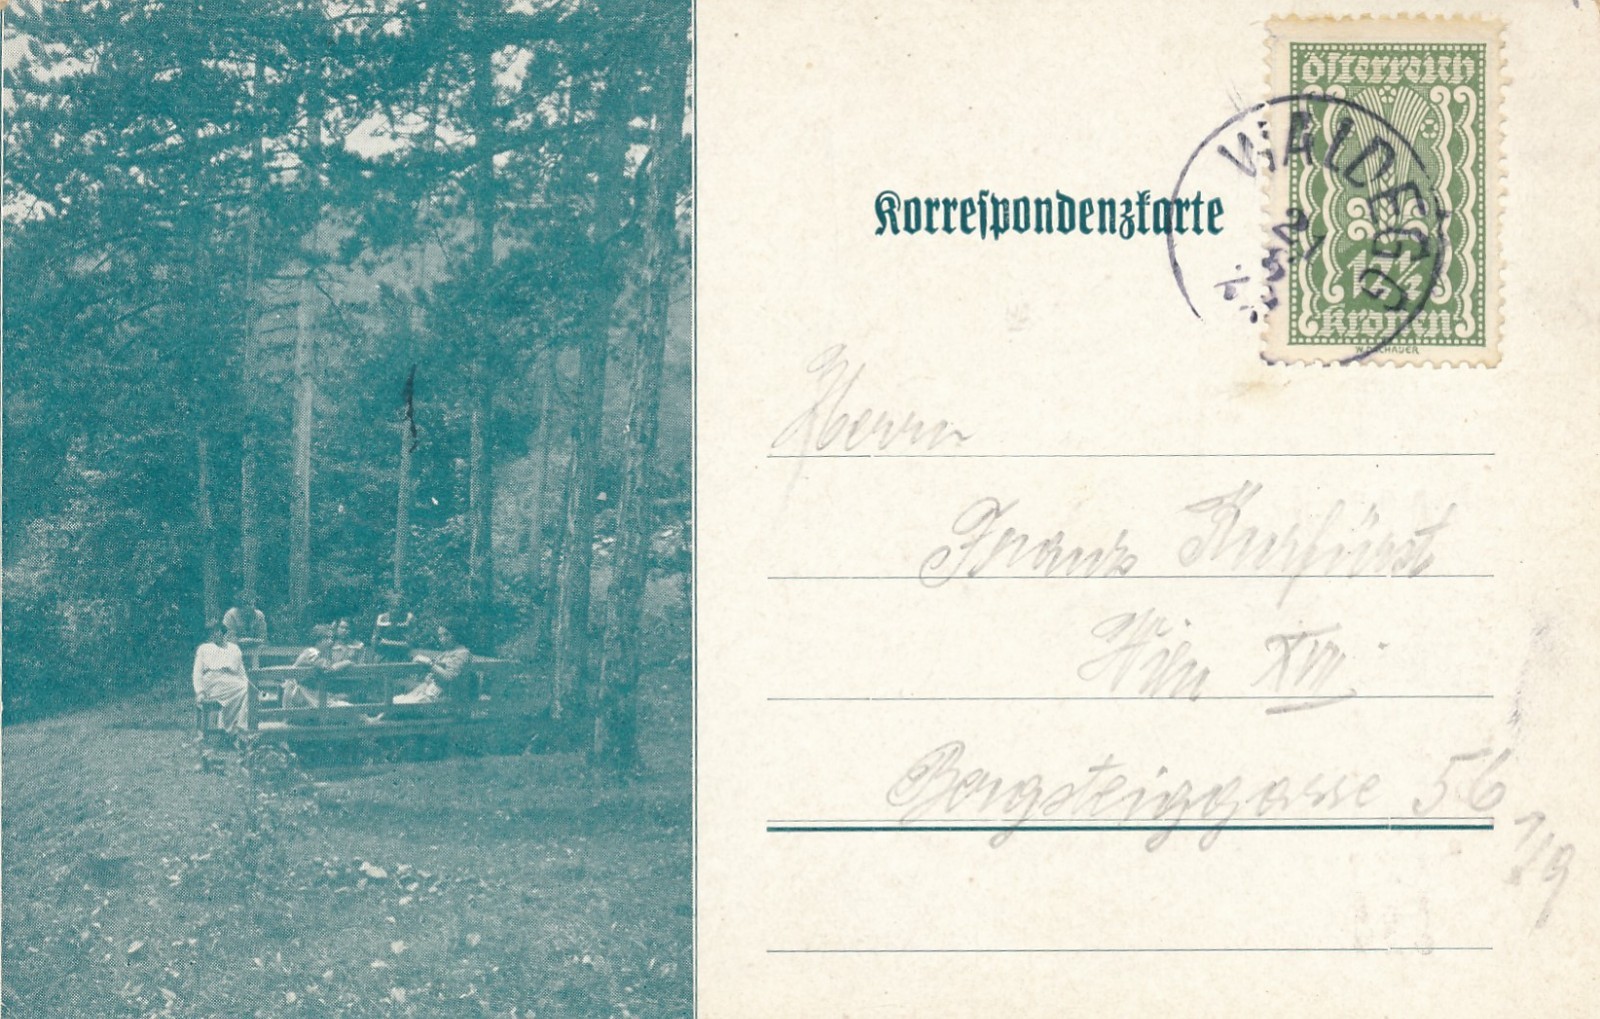 Korrespondenzkarte
Österreich
12½
Kronen
W. DACHAUER
WALDEGG
21
Herrn
Franz Kurfürst
Wien XVII.
Bergsteiggasse 56